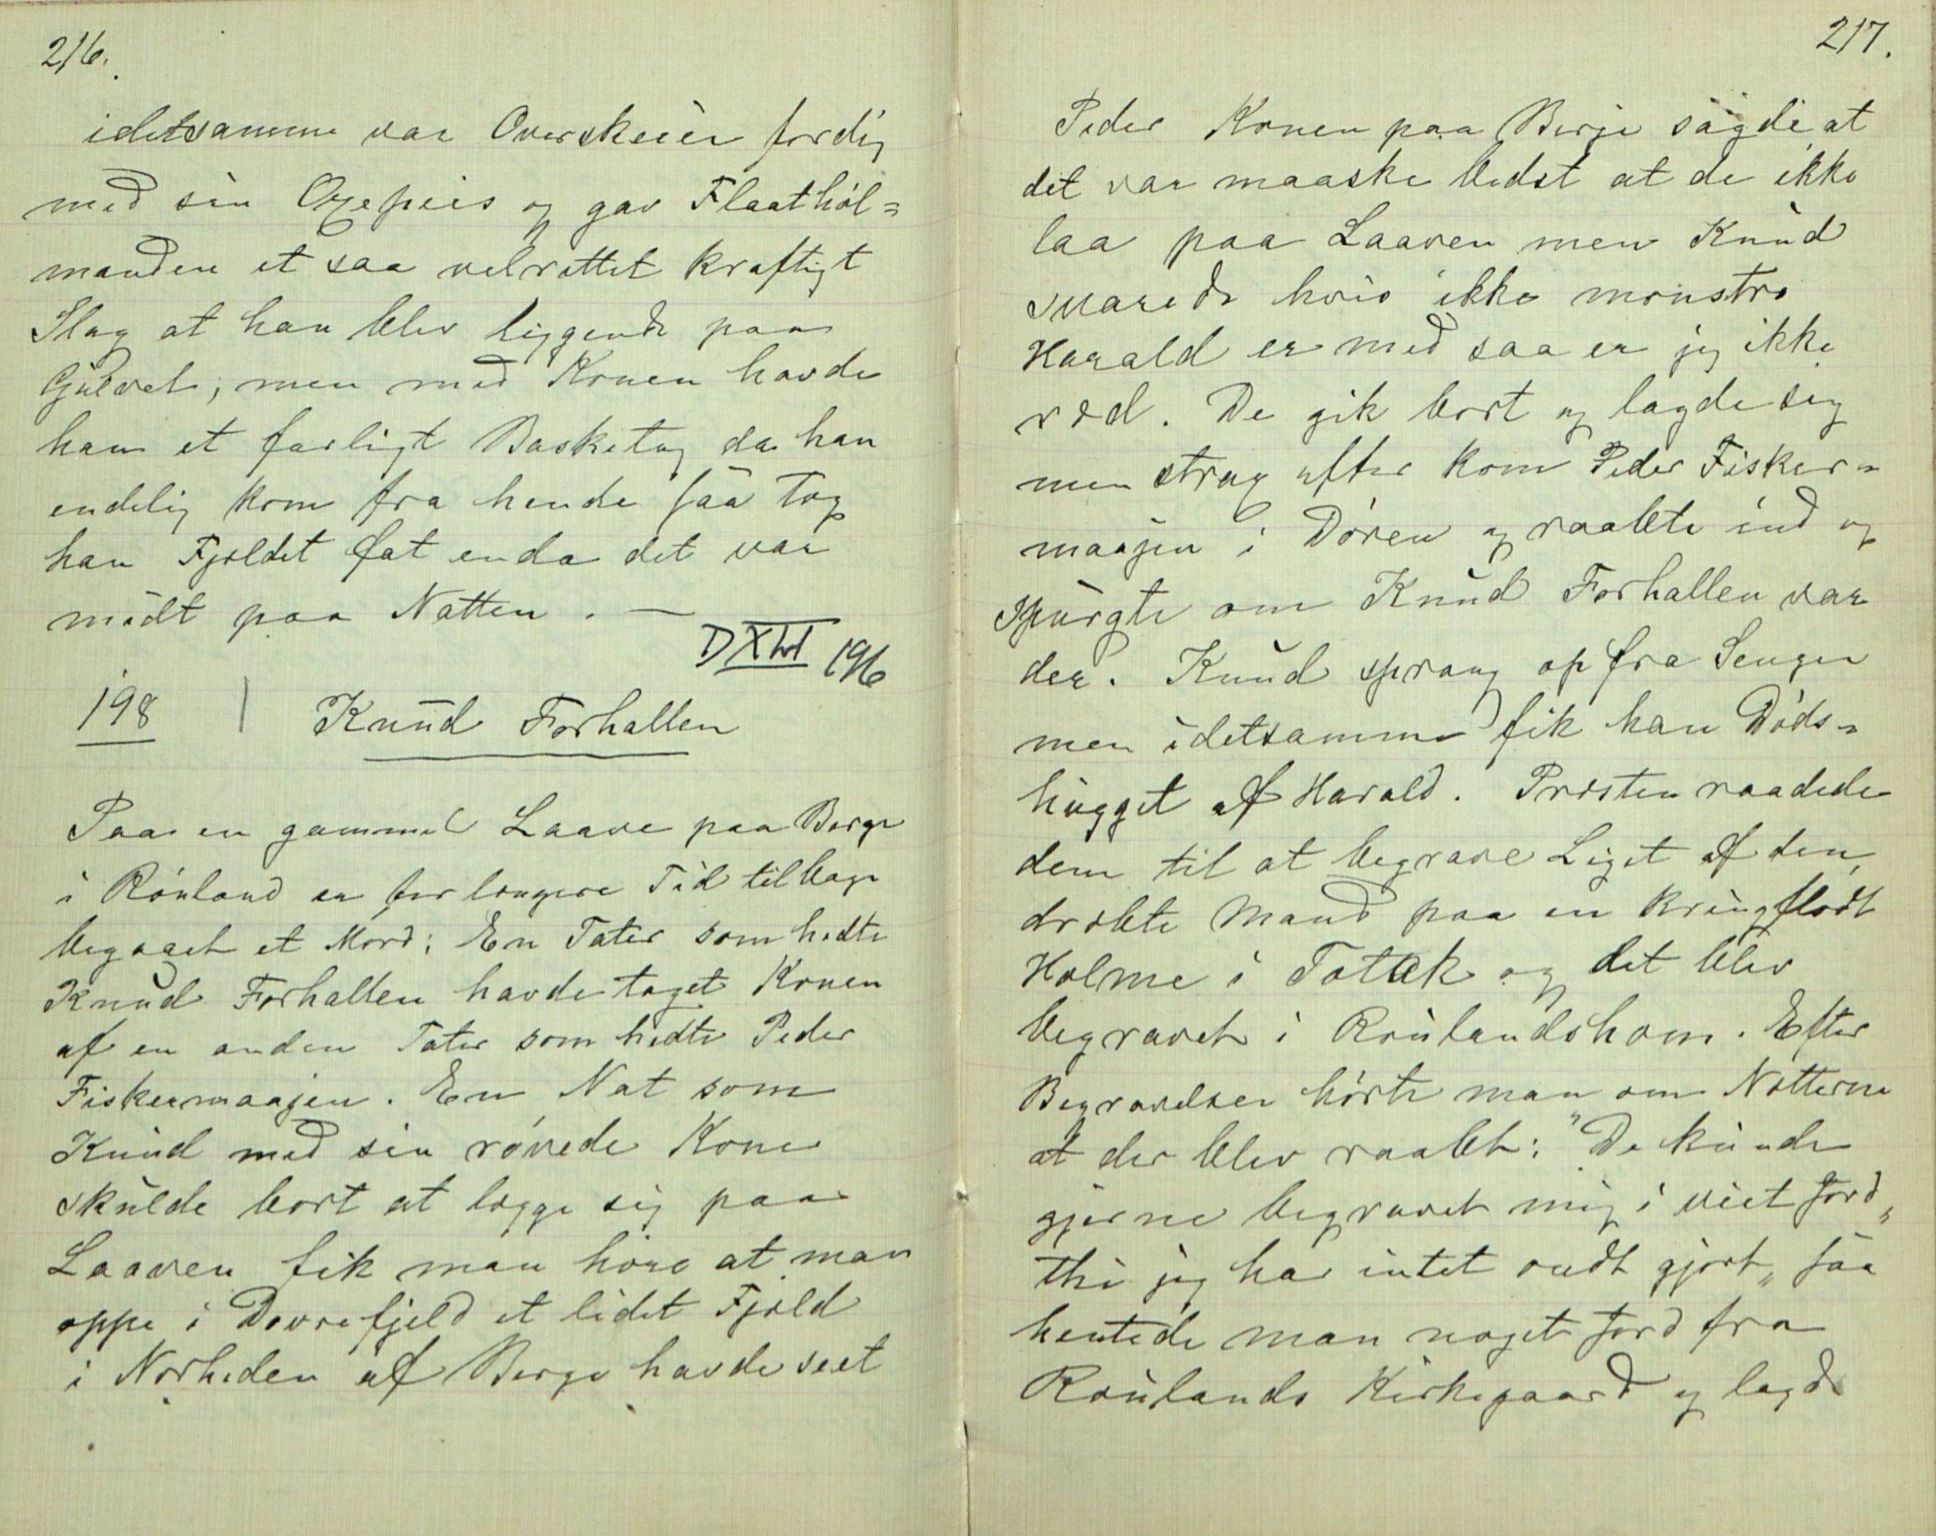 216.
idetsamme var Overskeier færdig
med sin Oxepeis og gav Flaathøl=
manden et saa velrettet kraftigt
Slag at han blev liggende paa
Gulvet, men med Konen havde
han et farligt Basketag da han
endelig kom fra hende saa tog
han Fjeldet fat enda det var
midt paa Natten. —
DXLVI 196
198 | Knud Forhallen
Paa en gammel Laave paa Berge
i Røuland er for længere Tid tilbage
begaaet et Mord: En Tater som hedte
Knud Forhallen havde taget Konen
af en anden Tater som hedte Peder
Fiskermaajen. En Nat som
Knud med sin røvede Kone
skulde bort at lægge sig paa
Laaven fik man høre at man
oppe i Dovrefjeld et lidet Fjeld
i Nærheden af Berge havde seet
217.
Peder Konen paa Berge sagde at
det var maaske bedst at de ikke
laa paa Laaven men Knud
svarede hvis ikke monstro
Harald er med saa er jeg ikke
ræd. De gik bort og lagde sig
men strax efter kom Peder Fisker=
maajen i Døren og raabte ind og
spurgte om Knud Forhallen var
der. Knud sprang op fra Sengen
men idetsamme fik han Døds=
hugget af Harald. Præsten raadede
dem til at begrave Liget af den
dræbte Mand paa en kringflødt
Holme i Totak og det blev
begravet i Røulandsholm. Efter
Begravelsen hørte man om Nætterne
at der blev raabt: "De kunde
gjerne begravet mig i viet Jord„
thi jeg har intet ondt gjort„ saa
hentede man noget Jord fra
Røulands Kirkegaard og lagde